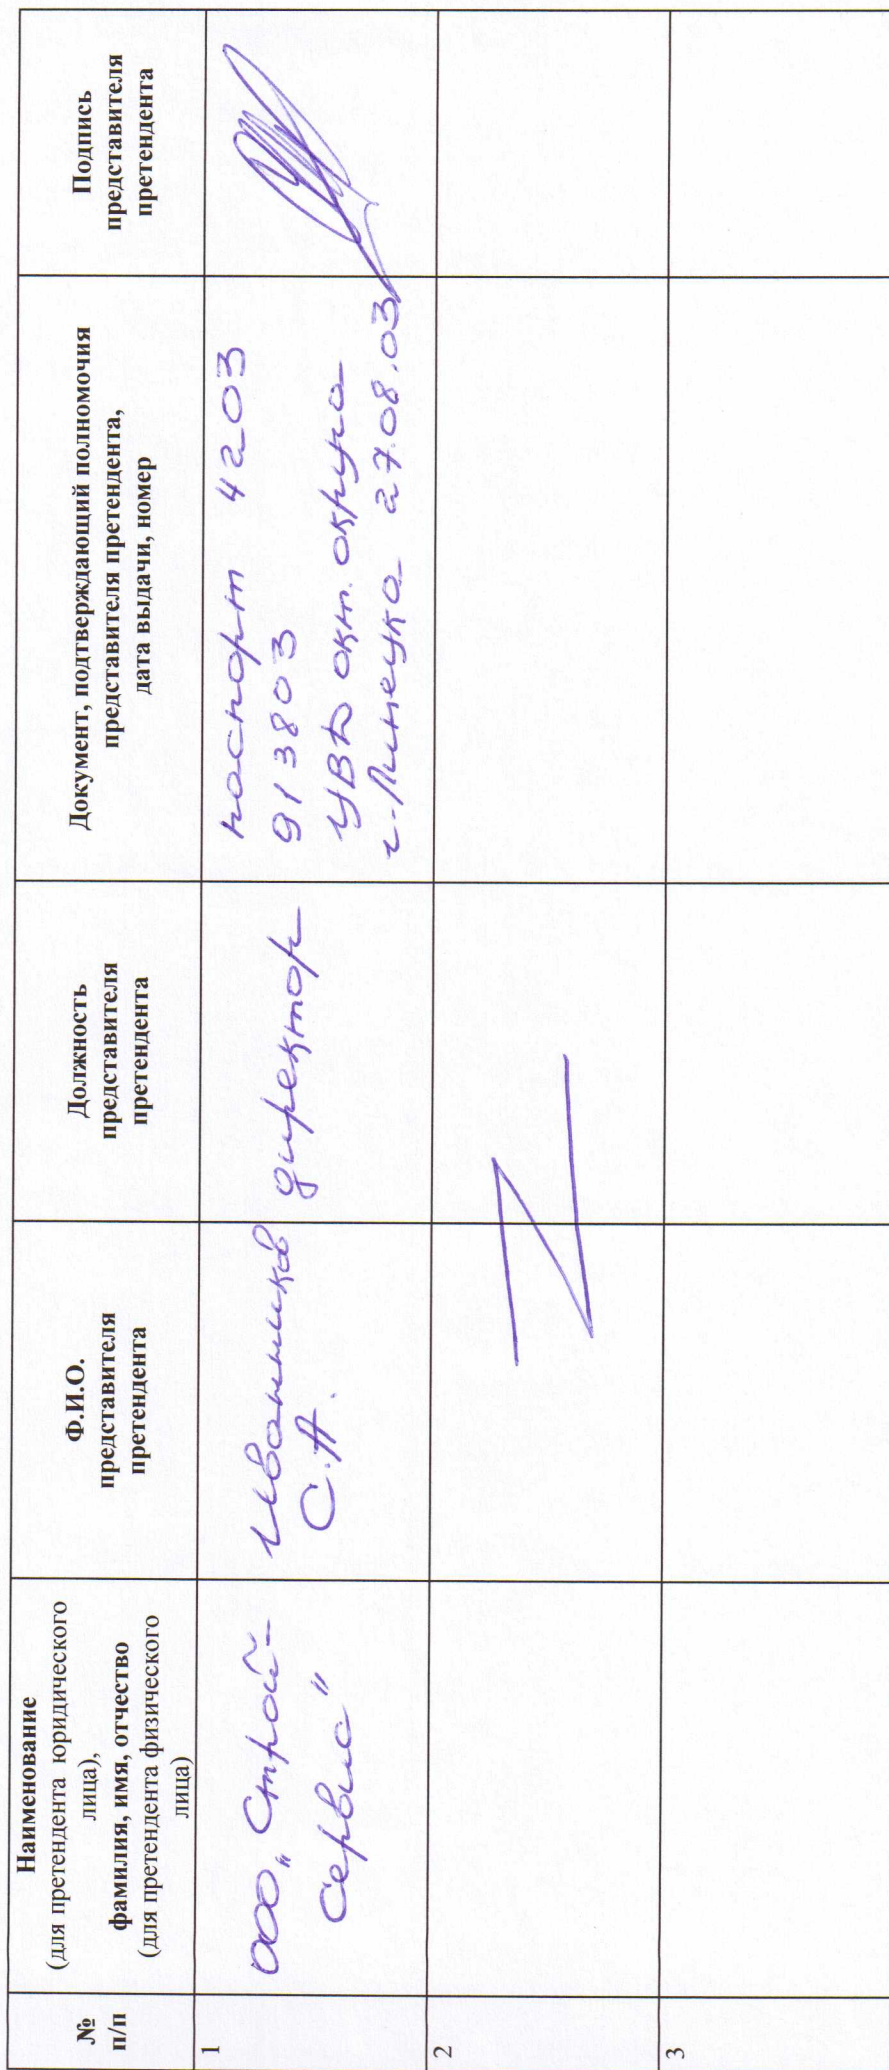 №
п/п
Наименование
(для претендента юридического
лица),
фамилия, имя, отчество
(для претендента физического
лица)
Ф.И.О.
представителя
претендента
Должность
представителя
претендента
Документ, подтверждающий полномочия
представителя претендента,
дата выдачи, номер
Подпись
представителя
претендента
1
ООО „Строй-
Сервис"
Иванников
С.А.
директор
паспорт 4203
913803
УВД окт. округа
г. Липецка 27.08.03
2
3